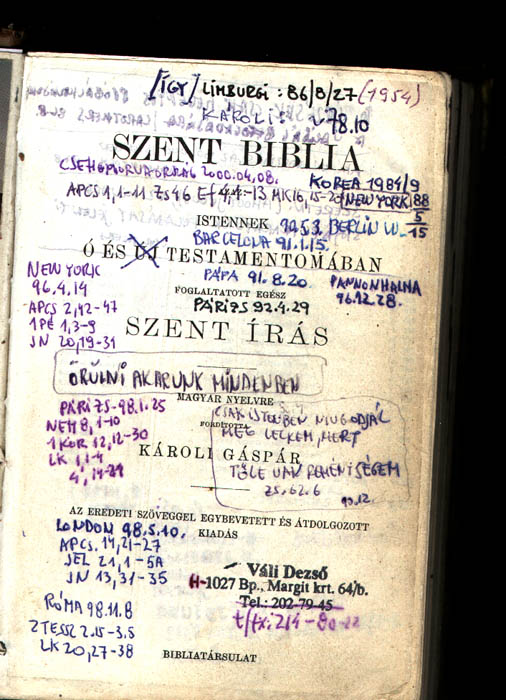 [ÍGY] LIMBURGI : 86/8/27 (1954)
KÁROLI: 78.10
SZENT BIBLIA
CSEHSZLOVÁKIA 2000.04.08.
KOREA 1984/9
APCS 1,1-11 ZS 46 Ef 4,4-13 MK 16,15-20
NEW YORK 88
5
15
ISTENNEK
1953. BERLIN W.
BARCELONA 91.1.15.
Ó ÉS ÚJ TESTAMENTOMÁBAN
PÁPA 91.8.20.
PANNONHALMA
96.12.28.
FOGLALTATOTT EGÉSZ
PÁRIZS 92.4.29
NEW YORK
96.4.14
APCS 2,42-47
1PÉ 1,3-9
JN 20,19-31
SZENT ÍRÁS
ÖRÜLNI AKARUNK MINDENBEN
MAGYAR NYELVRE
FORDÍTOTTA
KÁROLI GÁSPÁR
CSAK ISTENBEN NYUGODJÁL
MEG LELKEM, MERT
TŐLE VAN REMÉNYSÉGEM
ZS. 62.6
90.12
PÁRIZS-98.1.25
NEH 8,1-10
1 KOR 12,12-30
LK 1,1-4
4,14-21
AZ EREDETI SZÖVEGGEL EGYBEVETETT ÉS ÁTDOLGOZOTT
KIADÁS
LONDON 98.5.10.
APCS. 14,21-27
JEL 21,1-5A
JN 13,31-35
Váli Dezső
H-1027 Bp., Margit krt. 64/b.
Tel.: 202-79-45
t/fx: 214-
RÓMA 98.11.8
2TESSZ 2.15-3.5
LK 20,27-38
BIBLIATÁRSULAT